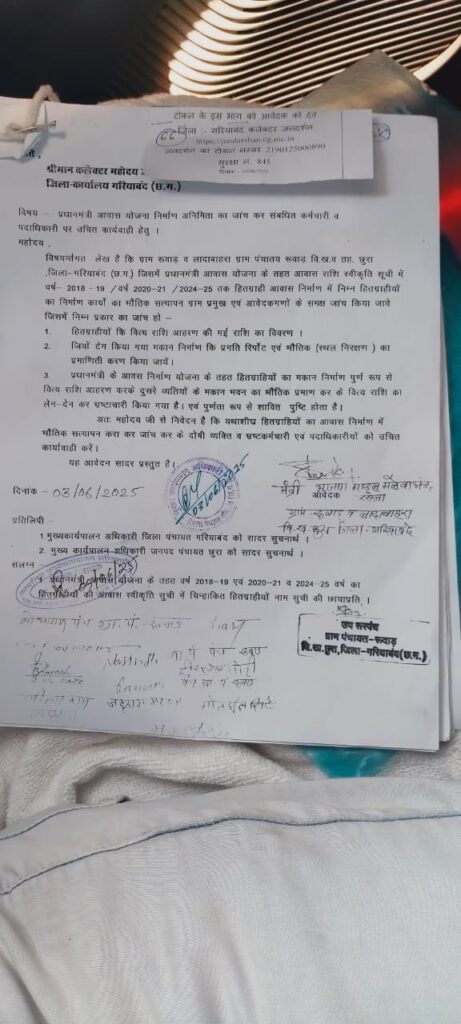 टोकन के इस भाग को आवेदक को देवें
जिला :- गरियाबंद कलेक्टर जनदर्शन
https://jandarshan.cg.nic.in
जनदर्शन का टोकन नम्बर 2190125000890
सुरक्षा नं. 845
श्रीमान कलेक्टर महोदय
जिला-कार्यालय गरियाबंद (छ.ग.)
विषय – प्रधानमंत्री आवास योजना निर्माण अनिमिता का जांच कर संबधित कर्मचारी व
पदाधिकारी पर उचित कार्यवाही हेतु ।
महोदय ,
विषयर्न्तगत लेख है कि ग्राम रूवाड़ व लादाबाहरा ग्राम पंचायत रूवाड़ वि.ख.व तह. छुरा
,जिला-गरियाबंद (छ.ग.) जिसमें प्रधानमंत्री आवास योजना के तहत आवास राशि स्वीकृति सूची में
वर्ष- 2018 - 19 /वर्ष 2020-21 /2024-25 तक हितग्राही आवास निर्माण में निम्न हितग्राहीयों
का निर्माण कार्यो का भौतिक सत्यापन ग्राम प्रमुख एवं आवेदकगणों के समक्ष जांच किया जावे
जिसमें निम्न प्रकार का जांच हो –
1. हितग्राहीयों कि वित्य राशि आहरण की गई राशि का विवरण ।
2. जियों टेग किया गया मकान निर्माण कि प्रगति रिर्पोट एवं भौतिक (स्थल निरक्षण ) का
प्रमाणिती करण किया जायें।
3. प्रधानमंत्री के आवस निर्माण योजना के तहत हितग्राहियों का मकान निर्माण पुर्ण रूप से
वित्य राशि आहरण करके दुसरे व्यतियों के मकान भवन का भौतिक प्रमाण कर के वित्य राशि का
लेन-देन कर भ्रष्टाचारी किया गया है। एवं पुर्णता रूप से शावित पुष्टि होता है।
अतः महोदय जी से निवेदन है कि यथाशीघ्र हितग्राहीयों का आवास निर्माण में
भौतिक सत्यापन करा कर जांच कर के दोषी व्यक्ति व भ्रष्टकर्मचारी एवं पदाधिकारीयों को उचित
कार्यवाही करें।
यह आवेदन सादर प्रस्तुत है।
03/06/2025
आवेदक
दिनाक - 03/06/2025
प्रतिलिपी –
1.मुख्यकार्यपालन अधिकारी जिला पंचायत गरियाबंद को सादर सुचनार्थ ।
2. मुख्य कार्यपालन अधिकारी जनपद पंचायत छुरा को सादर सुचनार्थ ।
संलग्न
1. प्रधानमंत्री आवास योजना के तहत वर्ष 2018-19 एवं 2020-21 व 2024-25 वर्ष का
हितग्राहीयों की आवास स्वीकृति सूची में चिन्हाकित हितग्राहीयों नाम सुची की छायाप्रति ।
उप सरपंच
ग्राम पंचायत-रूवाड़
वि.ख.छुरा,जिला-गरियाबंद(छ.ग.)